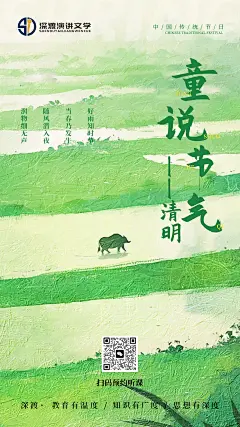 深渡演讲文学
SHENDUYANJIANGWENXUE
中国传统节日
CHINESE TRADITIONAL FESTIVAL
童说节气
——清明
好雨知时节
当春乃发生
随风潜入夜
润物细无声
扫码预约听课
深渡· 教育有温度 / 知识有广度 / 思想有深度